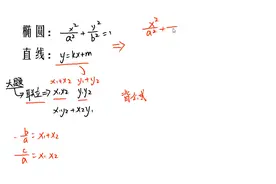 椭圆： x²/a² + y²/b² = 1
直线： y=kx+m
⇒ x²/a² +
大题
联立 ⇒ x₁+x₂ y₁+y₂
x₁x₂ y₁y₂
x₁y₂+x₂y₁
-b/a = x₁+x₂
c/a = x₁x₂